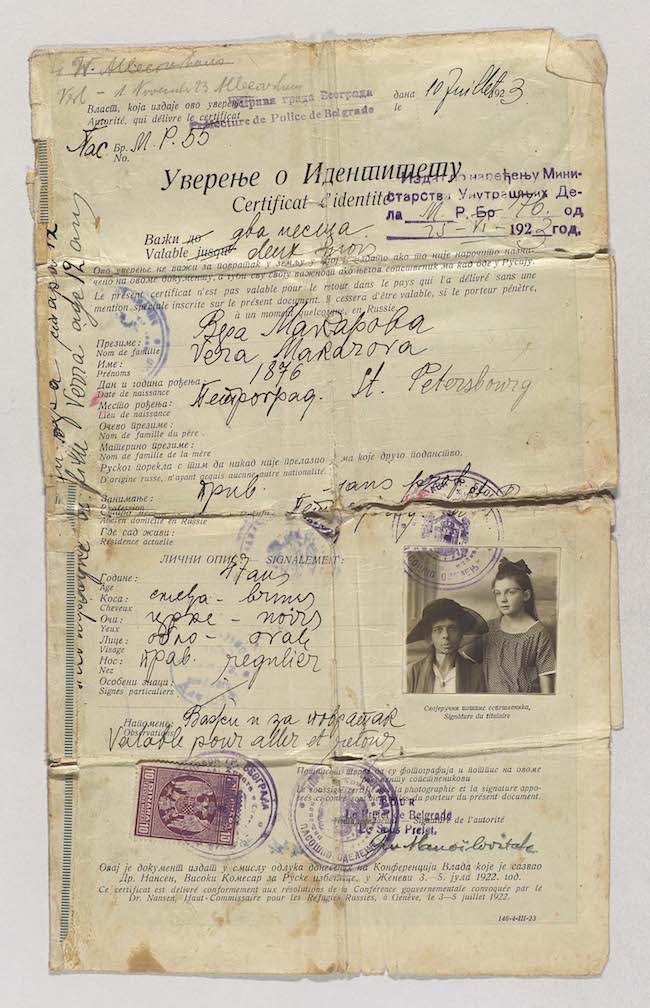 W.
1 November 23
Власт, која издаје ово уверење
Управа града Београда
Autorité, qui délivre le certificat
Préfecture de Police de Belgrade
дана 10 Juillet 1923
le
Пас Бр. М.Р.55
No.
Уверење о Идентитету
Certificat d'identité
Издат по наређењу Мини-
старства Унутрашњих Де-
ла М. Р. Бр. 76. од
25-VI- 1923 год.
Важи до два месеца.
Valable jusque deux mois
Ово уверење не важи за повратак у земљу у којој је издато ако то није нарочито назна-
чено на овоме документу, а губи сву своју важност ако његов сопственик ма кад оде у Русију.
Le présent certificat n'est pas valable pour le retour dans le pays qui l'a délivré sans une
mention spéciale inscrite sur le présent document. Il cessera d'être valable, si le porteur pénètre,
à un moment quelconque, en Russie.
Вера Макарова
Презиме:
Nom de famille
Vera Makarova
Име:
Prénoms
1876
Дан и година рођења:
Date de naissance
Место рођења:
Lieu de naissance
Петроград. St. Petersbourg
Очево презиме:
Nom de famille du père.
Материно презиме:
Nom de famille de la mère
Руског порекла с тим да никад није прелазио у ма које друго поданство.
D'origine russe, n'ayant acquis aucune autre nationalité.
Занимање:
Profession
прив. - sans prof.
Ancien domicile en Russie
Где сад живи:
Résidence actuelle
ЛИЧНИ ОПИС SIGNALEMENT:
Године:
Age
47 ans
Коса:
Cheveux
смеђа - bruns
Очи:
Yeux
црне - noirs
Лице:
Visage
обло - oval
Нос:
Nez
прав. regulier
Особени знаци:
Signes particuliers
Својеручни потпис сопственика,
Signature du titulaire
Напомене:
Observations
Важи и за повратак
Valable pour aller et retour
et fille Verra age 12 ans
Потписани тврди да су фотографија и потпис на овоме
сопственикови
Le soussigné certifie que la photographie et la signature appo-
sées ci-contre sont du porteur du présent document.
Signature de l'autorité
Le Préfet de Belgrade
10 ДИНАРА 10
Овај је документ издат у смислу одлука донесених на Конференцији Влада које је сазвао
Др. Нансен, Високи Комесар за Руске избеглице, у Женеви 3.—5. јула 1922. год.
Ce certificat est délivré conformement aux résolutions de la Conférence gouvernementale convoquée par le
Dr. Nansen, Haut-Commissaire pour les Réfugiés Russies, à Genève, le 3—5 juillet 1922.
146-4-III-23